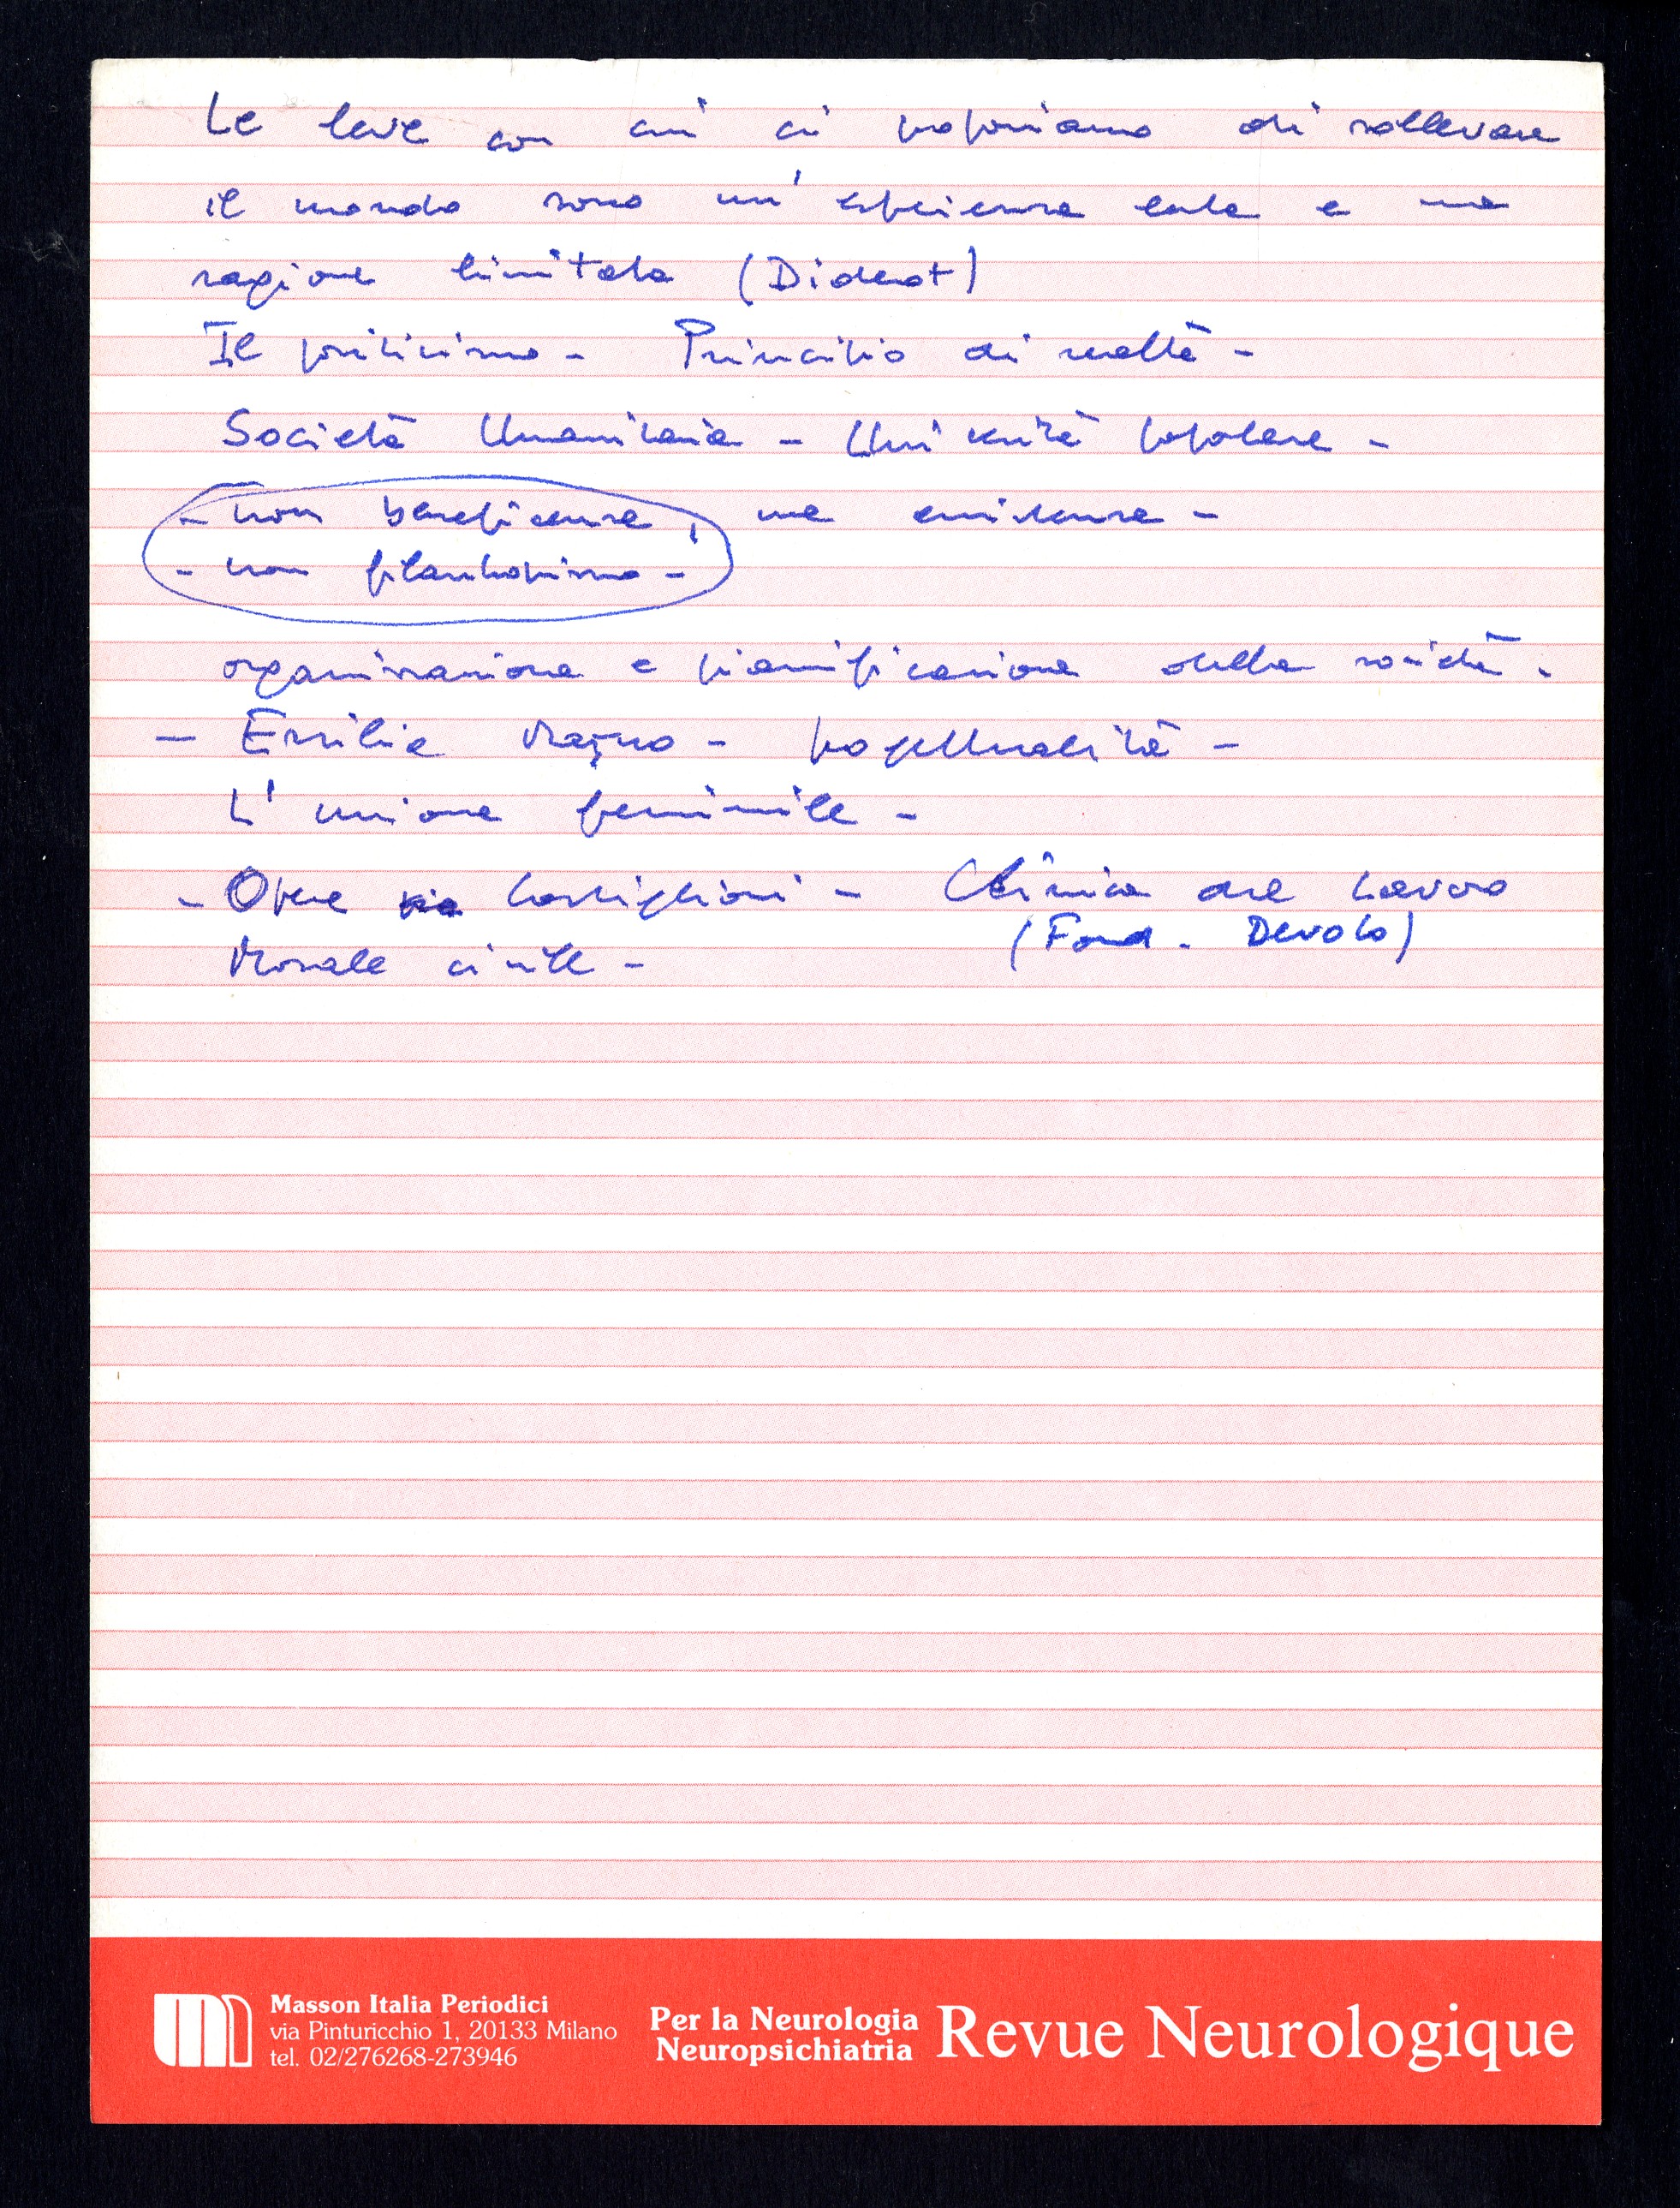 Le leve con cui ci proponiamo di sollevare
il mondo sono un'esperienza lenta e una
ragione limitata (Diderot)
Il positivismo - Principio di realtà -
Società Umanitaria - Università popolare -
- non beneficenza, ma assistenza -
- non filantropismo -
organizzazione e pianificazione della società.
- Ersilia Majno - progettualità -
L'unione femminile -
- Opere Castiglioni - Clinica del Lavoro
(Fond. Devoto)
Morale civile -
Masson Italia Periodici
via Pinturicchio 1, 20133 Milano
tel. 02/276268-273946
Per la Neurologia
Neuropsichiatria
Revue Neurologique